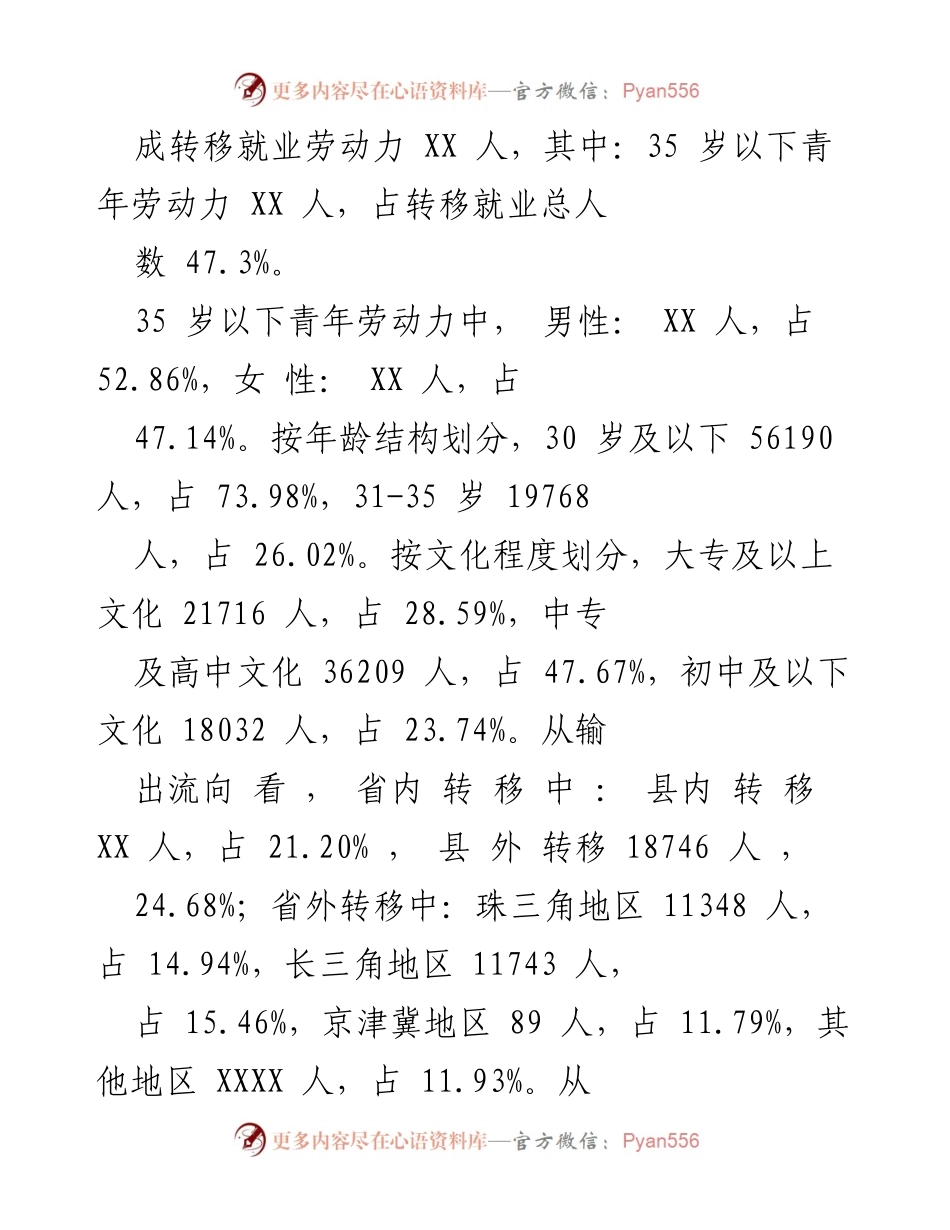 更多内容尽在心语资料库—官方微信：Pyan556
成转移就业劳动力 XX 人，其中：35 岁以下青
年劳动力 XX 人，占转移就业总人
数 47.3%。
35 岁以下青年劳动力中， 男性： XX 人，占
52.86%，女 性： XX 人，占
47.14%。按年龄结构划分，30 岁及以下 56190
人，占 73.98%，31-35 岁 19768
人，占 26.02%。按文化程度划分，大专及以上
文化 21716 人，占 28.59%，中专
及高中文化 36209 人，占 47.67%，初中及以下
文化 18032 人，占 23.74%。从输
出流向 看 ， 省内 转 移 中 ： 县内 转 移
XX 人，占 21.20% ， 县 外 转移 18746 人 ，
24.68%；省外转移中：珠三角地区 11348 人，
占 14.94%，长三角地区 11743 人，
占 15.46%，京津冀地区 89 人，占 11.79%，其
他地区 XXXX 人，占 11.93%。从
更多内容尽在心语资料库—官方微信：Pyan556